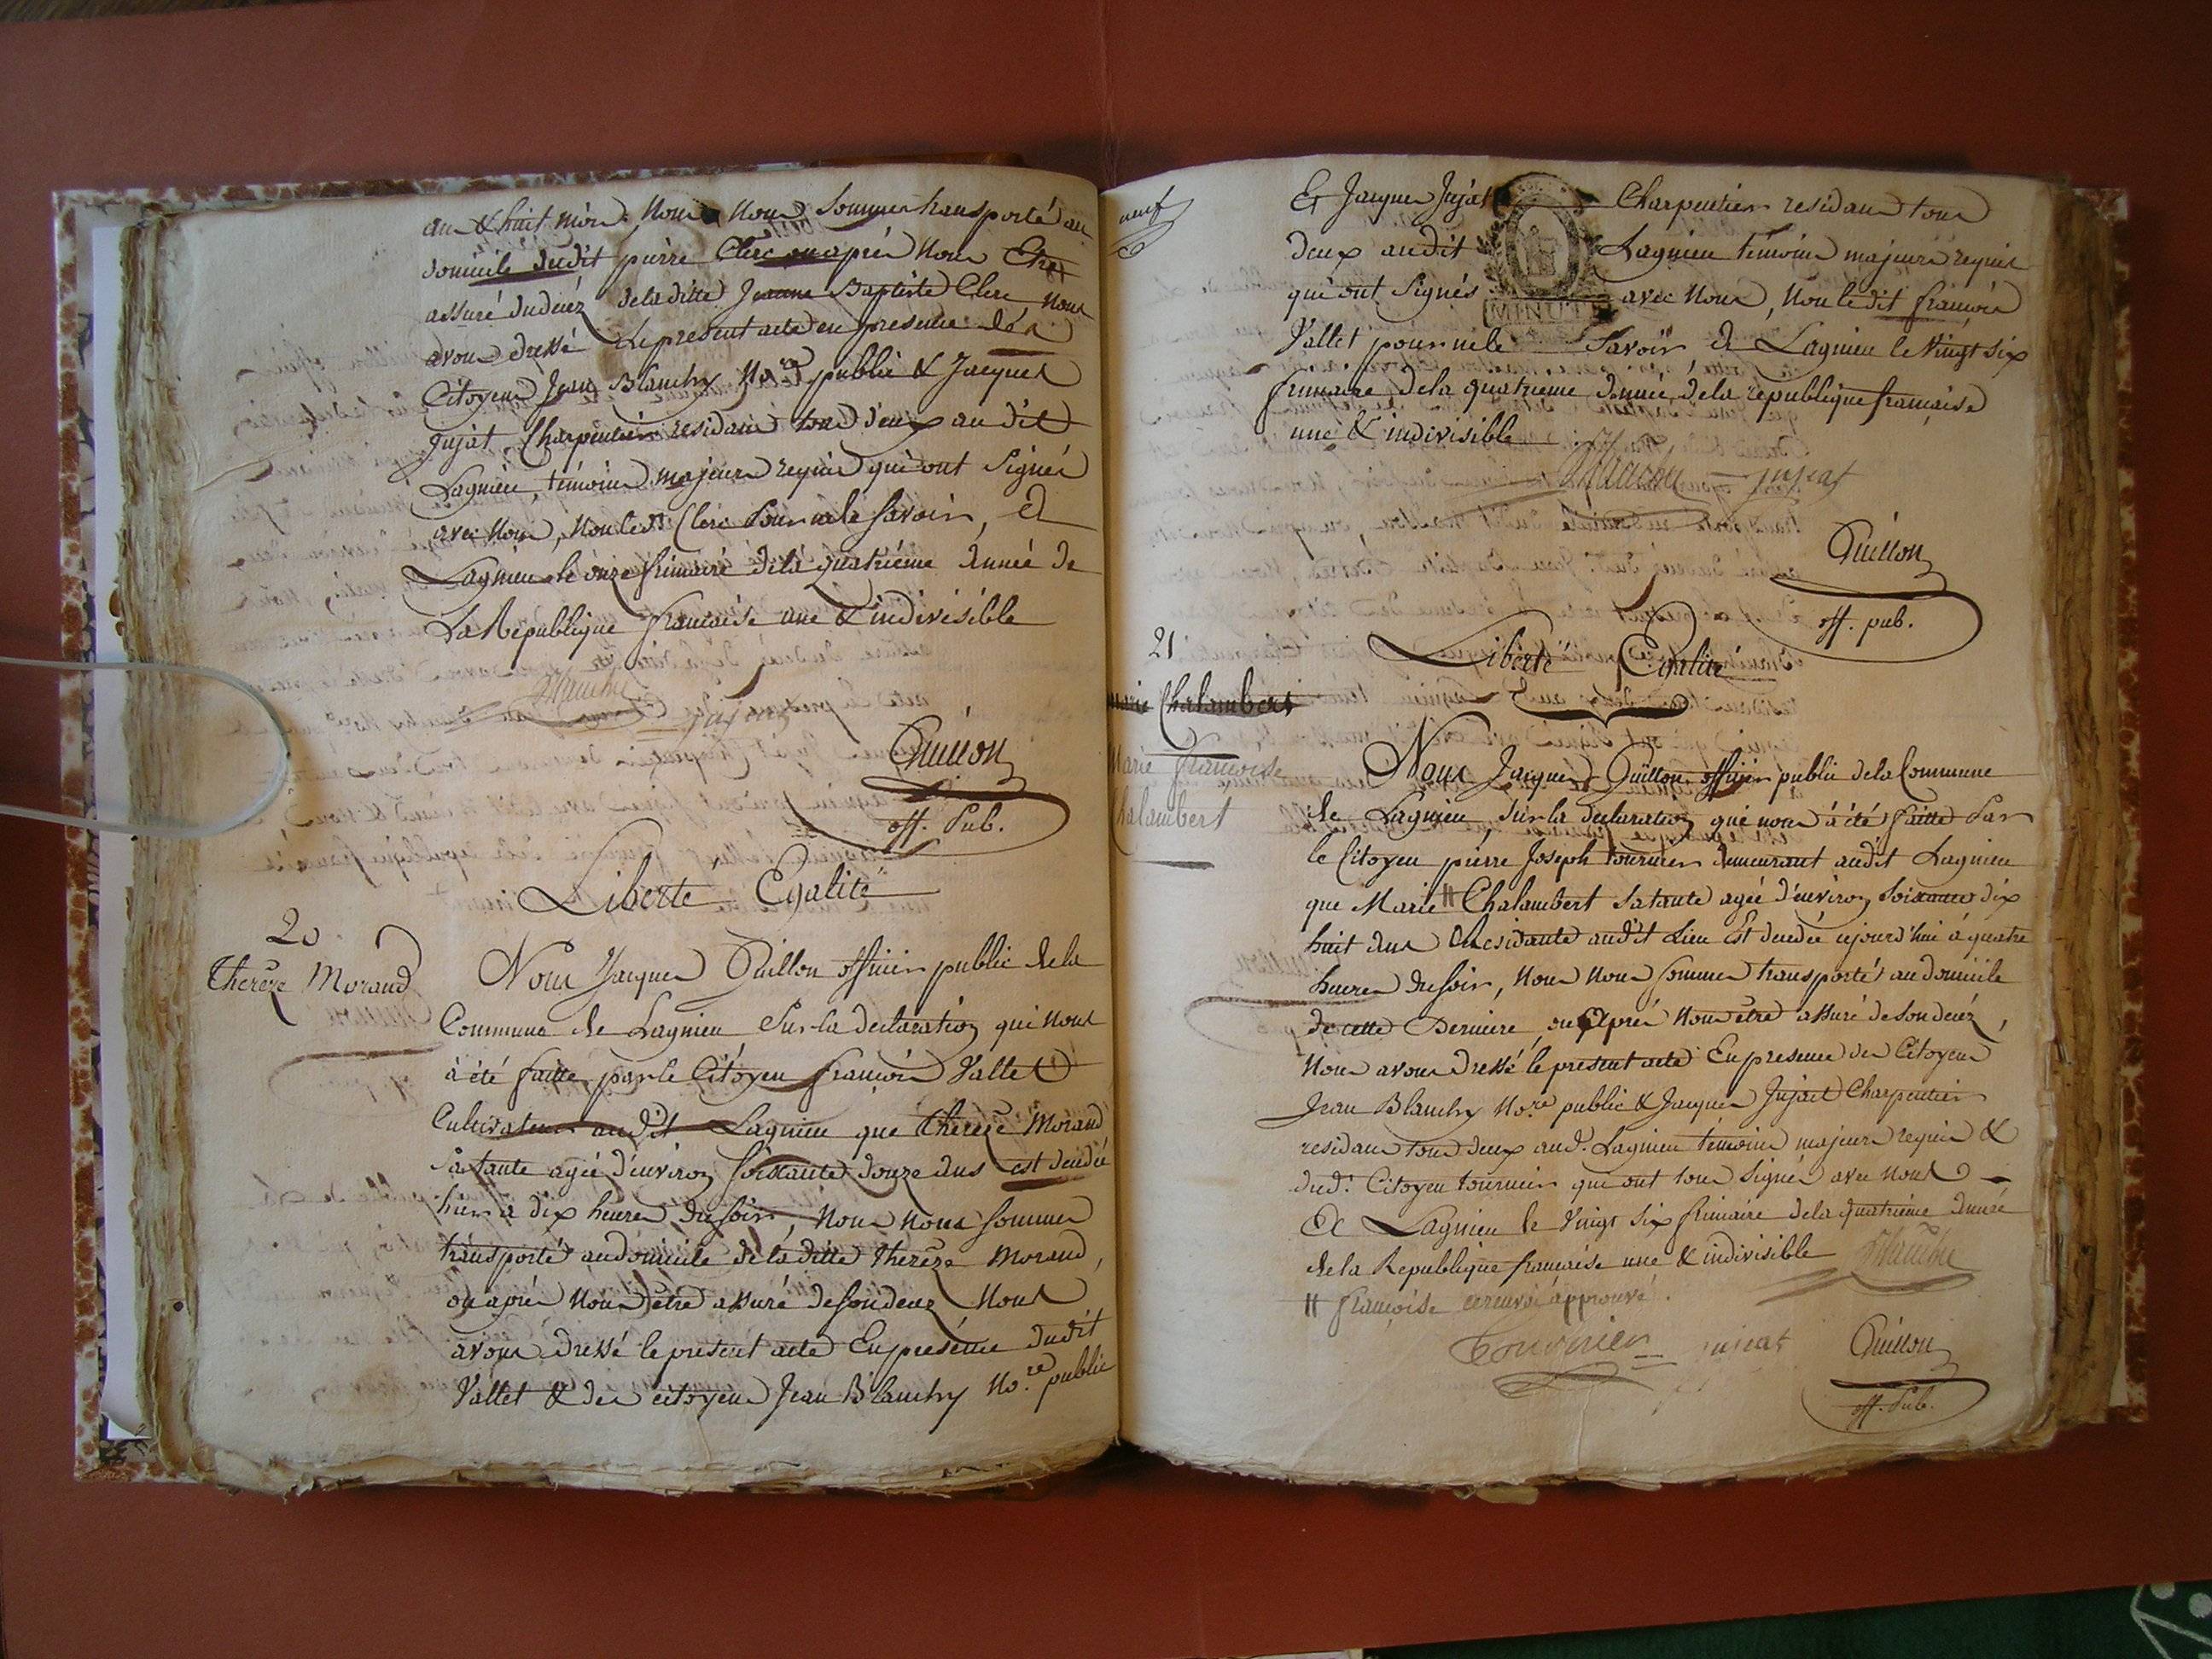 an & huit mois. Nous Nous sommes transporté au
domicile dudit pierre Clerc ou après Nous Etre
assuré du decéz de la ditte Jeanne Baptiste Clerc Nous
avons dressé le present acte en presence des
Citoyens Jean Blanchy No.re public & Jacques
Jujat, Charpentier residans tous deux au dit
Lagnieu, témoins majeurs requis qui ont Signés
avec Nous, Non led.t Clerc Pour ne le savoir, A
Lagnieu le onze frimaire de la quatriéme année de
La République francaise une & indivisible
Blanchy Jujat
Quillon
off. Pub.
Liberté Egalité
20
Thereze Morand
Nous Jacques Quillon officier public de la
Commune de Lagnieu Sur la declaration qui Nous
à été faitte par le Citoyen francois Vallet
Cultivateur audit Lagnieu que thereze Morand
sa tante agée d'environ soixante douze ans est decedée
hier à dix heures du soir, Nous Nous sommes
transporté au domicile de la ditte thereze Morand,
ou après Nous être assuré de son decez Nous
avons dressé le present acte En présence dudit
Vallet & des citoyens Jean Blanchy No.re public
neuf
Et Jacques Jujat Charpentier residans tous
deux audit Lagnieu témoins majeurs requis
qui ont Signés avec Nous, Non ledit francois
MINUTE
Vallet pour ne le Savoir, A Lagnieu le Vingt Six
frimaire de la quatrieme année de la republique francaise
une & indivisible
Blanchy Jujat
Quillon
off. pub.
21
Liberté Egalité
marie Chalambert
Marie françoise
Chalambert
Nous Jacques Quillon officier public de la Commune
de Lagnieu, sur la declaration que nous à été faitte Par
le Citoyen pierre Joseph tournier demeurant audit Lagnieu
que Marie # Chalambert sa tante agée d'environ soixante dix
huit ans Residante audit Lieu Est decedée cejourd'hui à quatre
heures du soir, Nous Nous sommes transporté au domicile
de cette Derniere, ou Après Nous être assuré de son decéz,
Nous avons dressé le present acte En presence des Citoyens
Jean Blanchy No.re public & Jacques Jujat Charpentier
residans tous deux aud.t Lagnieu témoins majeurs requis &
dud.t Citoyen tournier qui ont tous Signés avec Nous
A Lagnieu le Vingt six frimaire de la quatriéme année
de la Republique francaise une & indivisible Blanchy
# françoise approuvé.
Tournier Jujat Quillon
off. Pub.